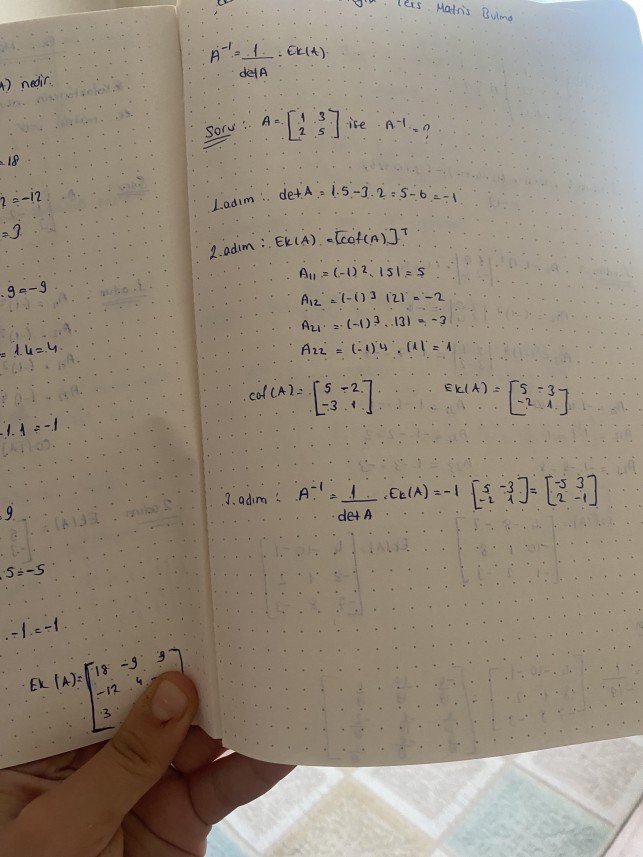 A) nedir.
=18
2=-12
=3
.9=-9
=1.4=4
-1.1=-1
9
.5=-5
.-1=-1
Ek(A)=[18 -9 9
-12 4
3
Ters Matris Bulma
A⁻¹ = 1/detA . Ek(A)
Soru: A = [1 3
2 5] ise A⁻¹=?
1.adım: detA = 1.5-3.2=5-6=-1
2.adım: Ek(A) =[cof(A)]ᵀ
A11 = (-1)². |5|=5
A12 = (-1)³ |2| = -2
A21 = (-1)³. |3| = -3
A22 = (-1)⁴. |1| = 1
cof(A) = [5 -2
-3 1] Ek(A) = [5 -3
-2 1]
3.adım: A⁻¹ = 1/detA .Ek(A) = -1 [5 -3
-2 1] = [-5 3
2 -1]